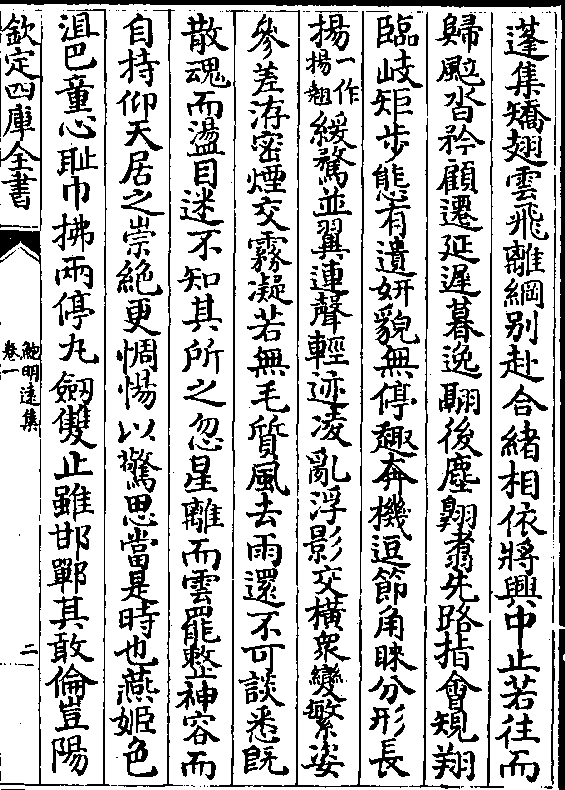 蓬集矯翅雲飛離綱别赴合緒相依將興中止若往而
歸颯沓矜顧遷延遲暮逸翮後塵翺翥先路指會規翔
臨岐矩步態有遺妍貌無停趣奔機逗節角睞分形長
揚一作揚翹緩騖並翼連聲輕迹凌亂浮影交橫衆變繁姿
參差洊密煙交霧凝若無毛質風去雨還不可談悉旣
散魂而盪目迷不知其所之忽星離而雲罷整神容而
自持仰天居之崇絶更惆悵以驚思當是時也燕姬色
沮巴童心恥巾拂兩停丸劒雙止雖邯鄲其敢倫豈陽
欽定四庫全書
鮑明遠集
卷一
二